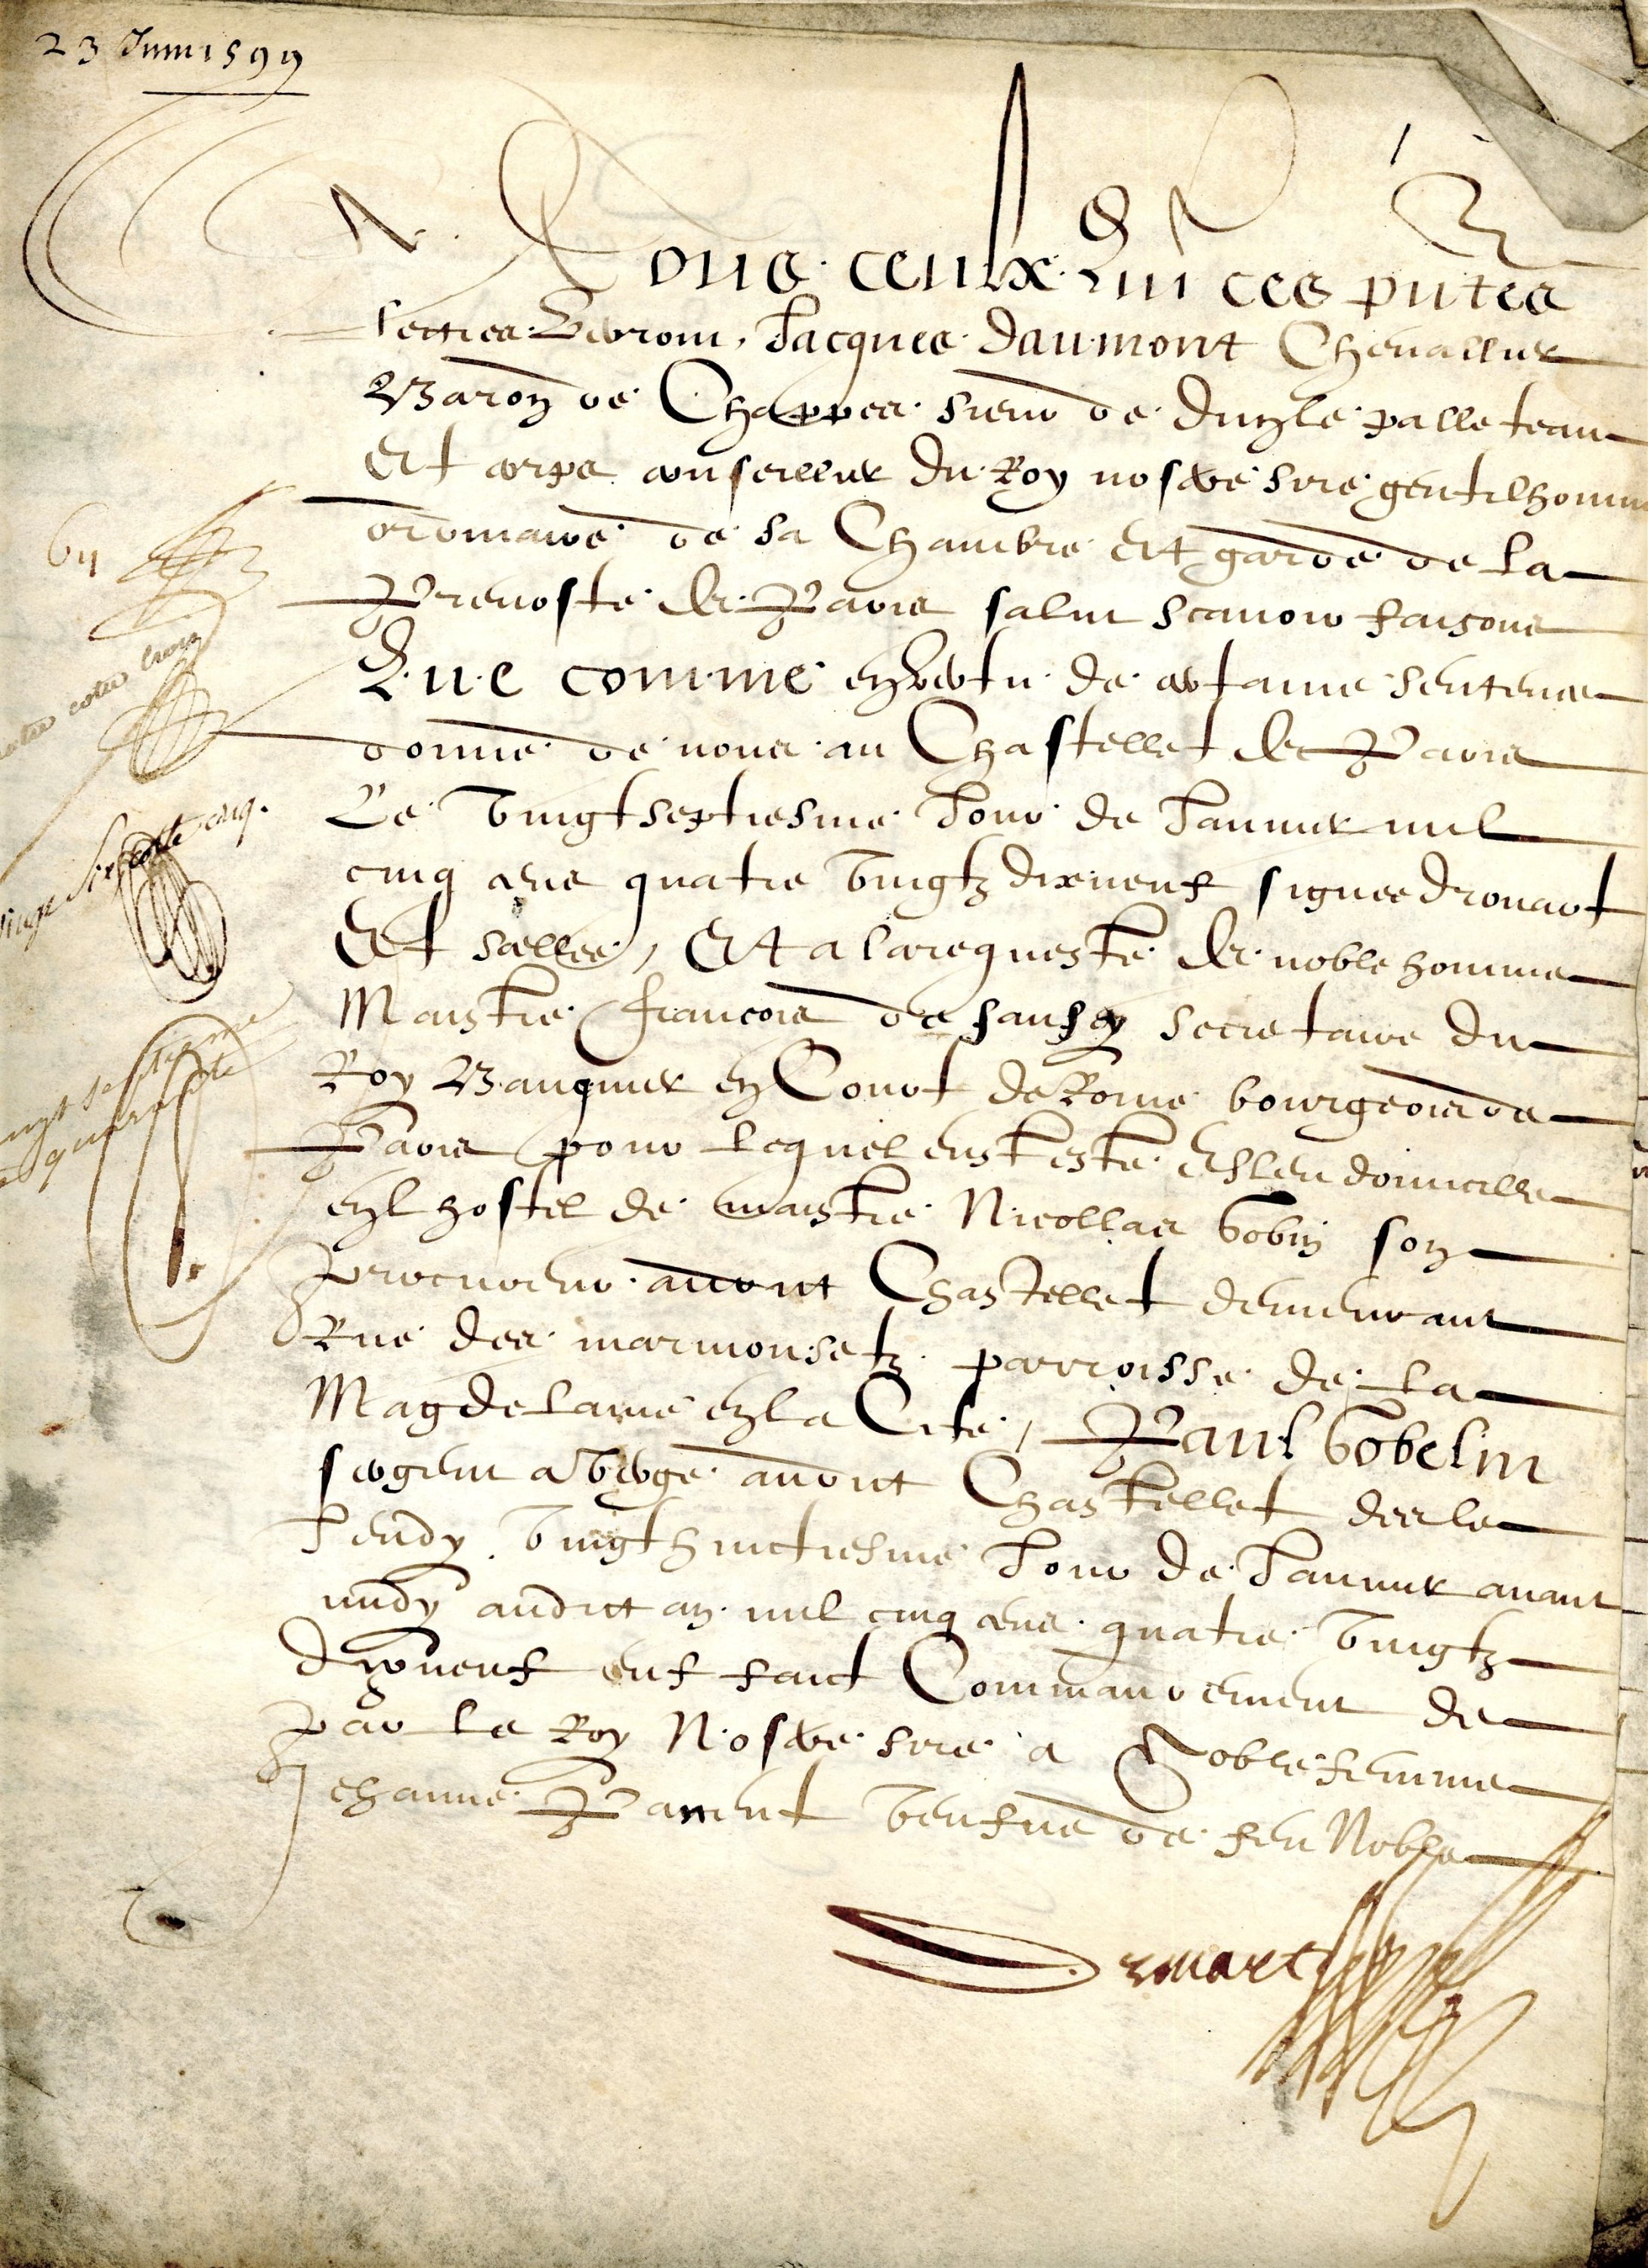 23 Juin 1599
A Tous ceulx Qui ces pñtes
lettres verront, Jacques Daumont Chevallier
Baron de Chappes sieur de Dun le palleteau
Et corps conseiller du Roy nostre sire gentilhomme
ordinaire de sa Chambre Et garde de la
Prevosté de Paris salut scavoir faisons
Que comme en vertu de certaine sentence
donnée de nous au Chastellet de Paris
Le vingt septiesme Jour de Janvier mil
cinq cens quatre vingtz dixneuf signee Drouart
Et scellee, Et a la requeste de noble homme
Maistre francois de Secretaire du
Roy Banquier en Court de Rome bourgeois de
Paris pour lequel eust esté Esleu domicille
en l hostel de maistre Nicollas Gobin son
procureur audit Chastellet demeurant
Rue des marmousetz parroisse de la
Magdelaine en la Cité, Paul Gobelin
sergent a verge audit Chastellet des le
Jeudy vingt huictiesme Jour de Janvier avant
midy audict an mil cinq cens quatre vingtz
dixneuf eust faict Commandement de
par le Roy Nostre sire a Noble femme
Jehanne Parent veufve de feu Noble
Drouart
six cotte cinq.